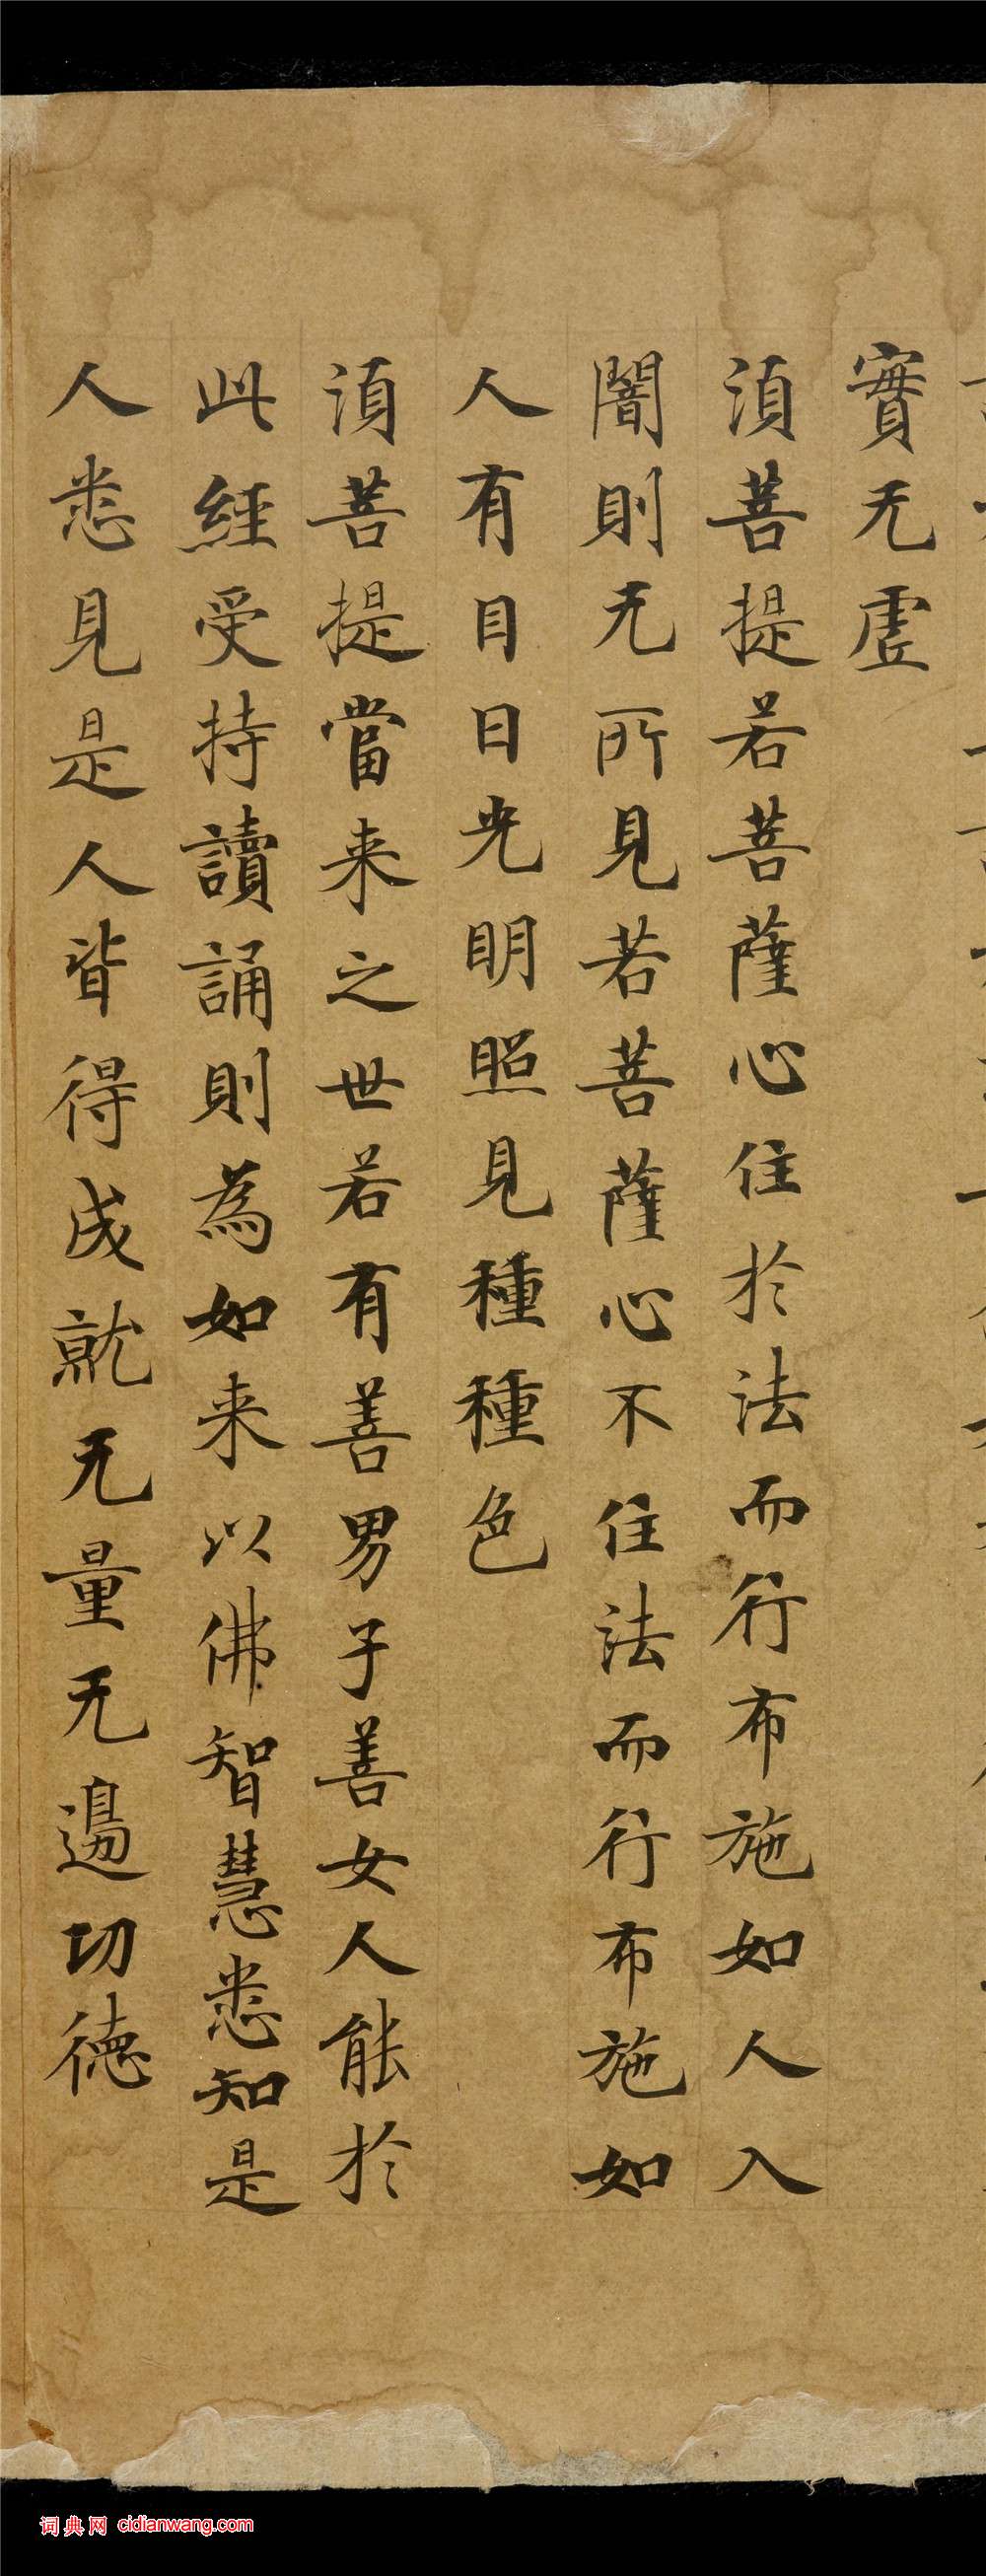 實无虛
須菩提若菩薩心住於法而行布施如人入
闇則无所見若菩薩心不住法而行布施如
人有目日光明照見種種色
須菩提當来之世若有善男子善女人能於
此經受持讀誦則為如来以佛智慧悉知是
人悉見是人皆得成就无量无邊功德
词典网 cidianwang.com